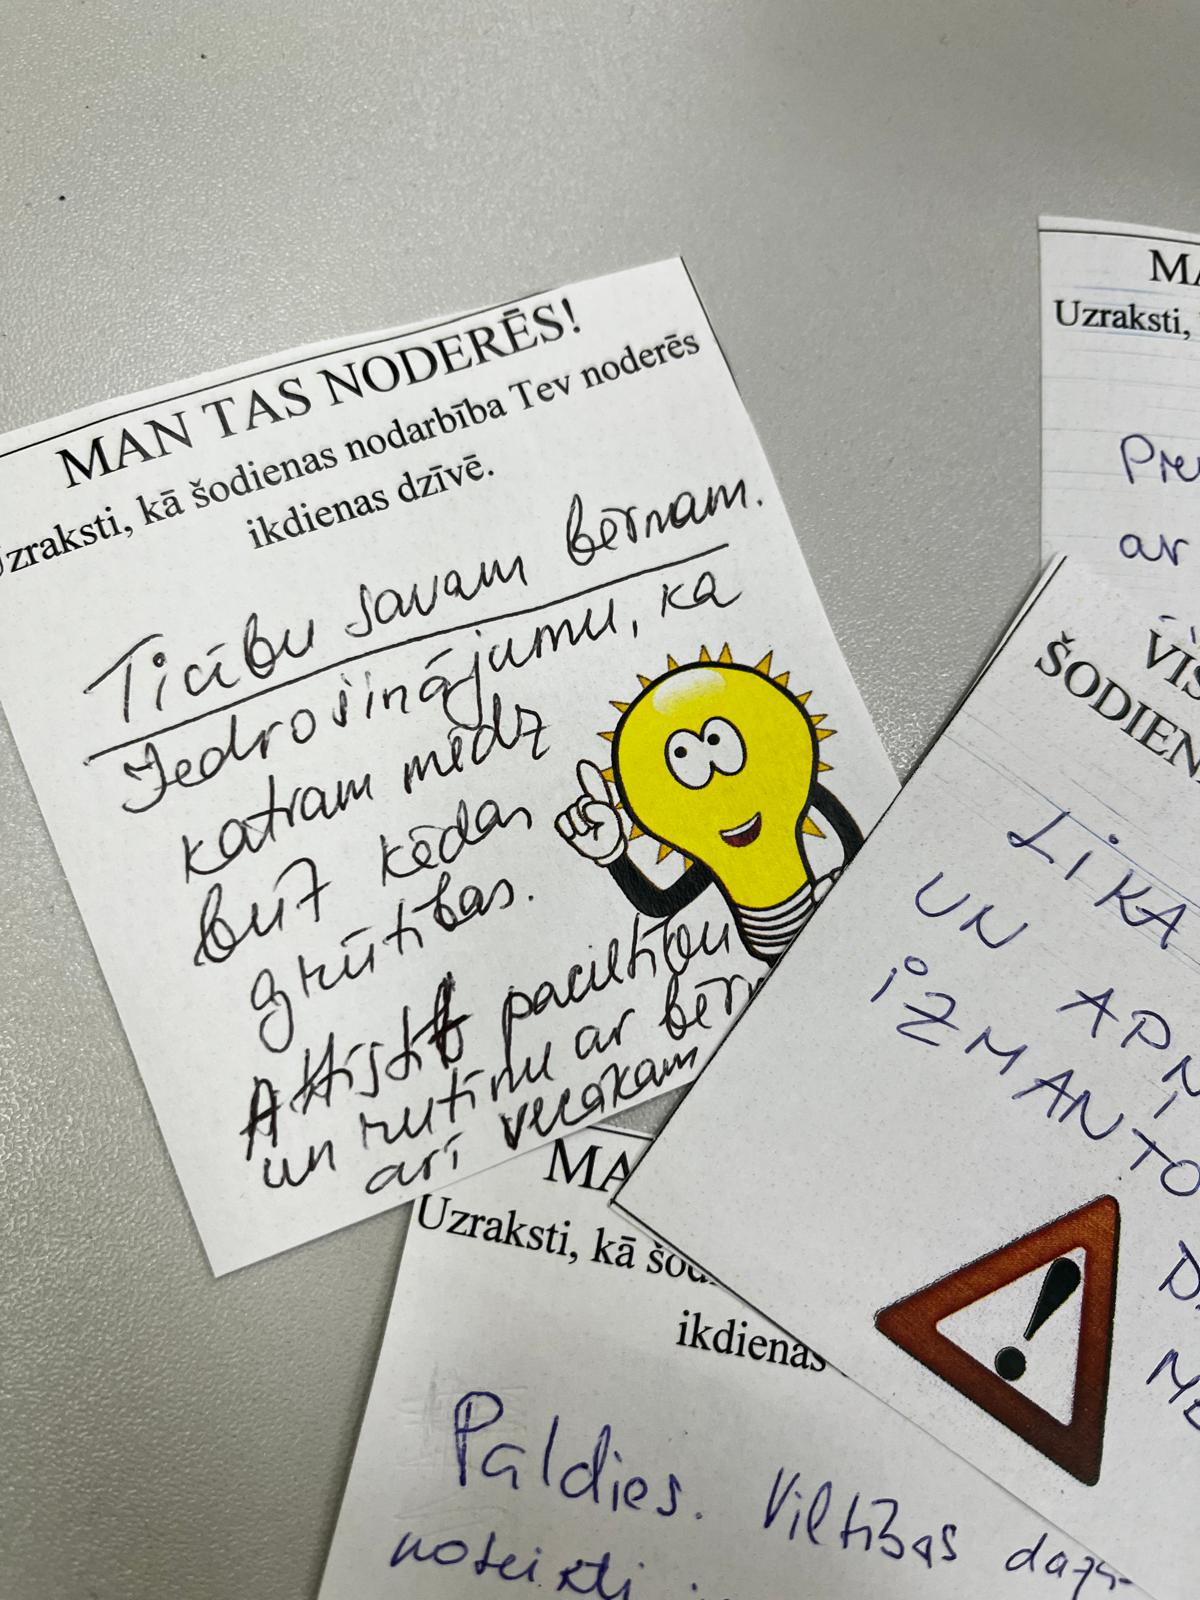 MAN TAS NODERĒS!
Uzraksti, kā šodienas nodarbība Tev noderēs
ikdienas dzīvē.
Ticību savam bērnam.
Iedrošinājumu, ka
katram mēdz
būt kādas
grūtības.
Attīstīt pacietību
un rutīnu ar bērn
arī vecākam
MA
Uzraksti,
ar
VIS
ŠODIEN
LIKA
UN APN
IZMANTO
MA
Uzraksti, kā šod
ikdienas
Paldies. Viltības daži
noteikti